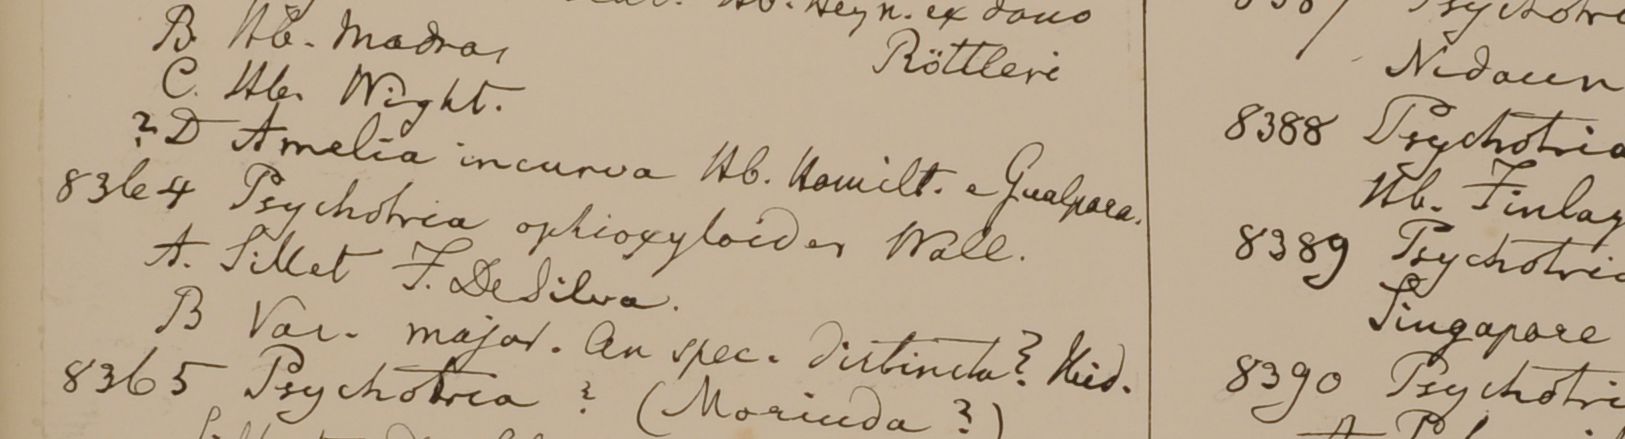 Hb. Heyn. ex dono
B. Hb. Madras
Röttleri
C. Hb. Wight.
? D Amelia incurva Hb. Hamilt. e Gualpara.
8364 Psychotria ophioxyloides Wall.
A. Sillet F. De Silva.
B Var. major. An spec. distincta? Hid.
8365 Psychotria ? (Morinda ?)
8387 Psychotri
Nidaun
8388 Psychotria
Hb. Finlay
8389 Psychotria
Singapore
8390 Psychotri